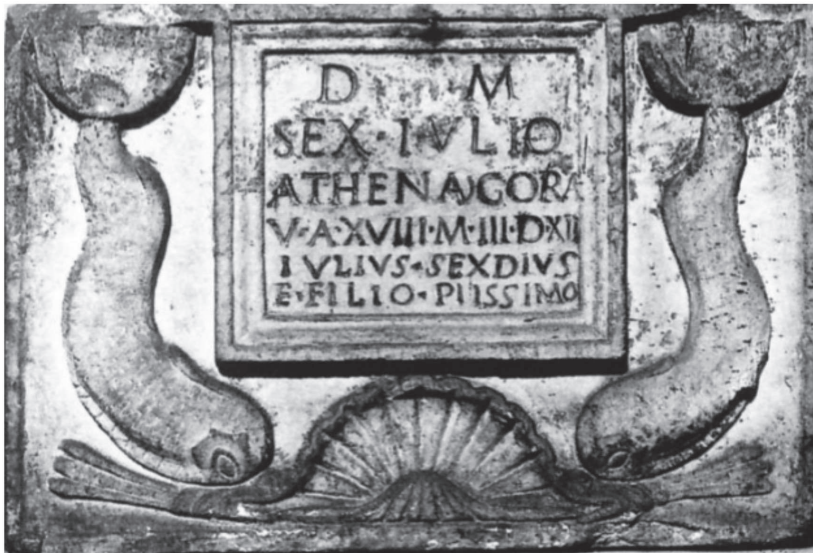 D M
SEX·IVLIO
ATHENAGORA
V·A·XVIII·M·III·D·XII
IVLIVS·SEXDIVS
E·FILIO·PIISSIMO